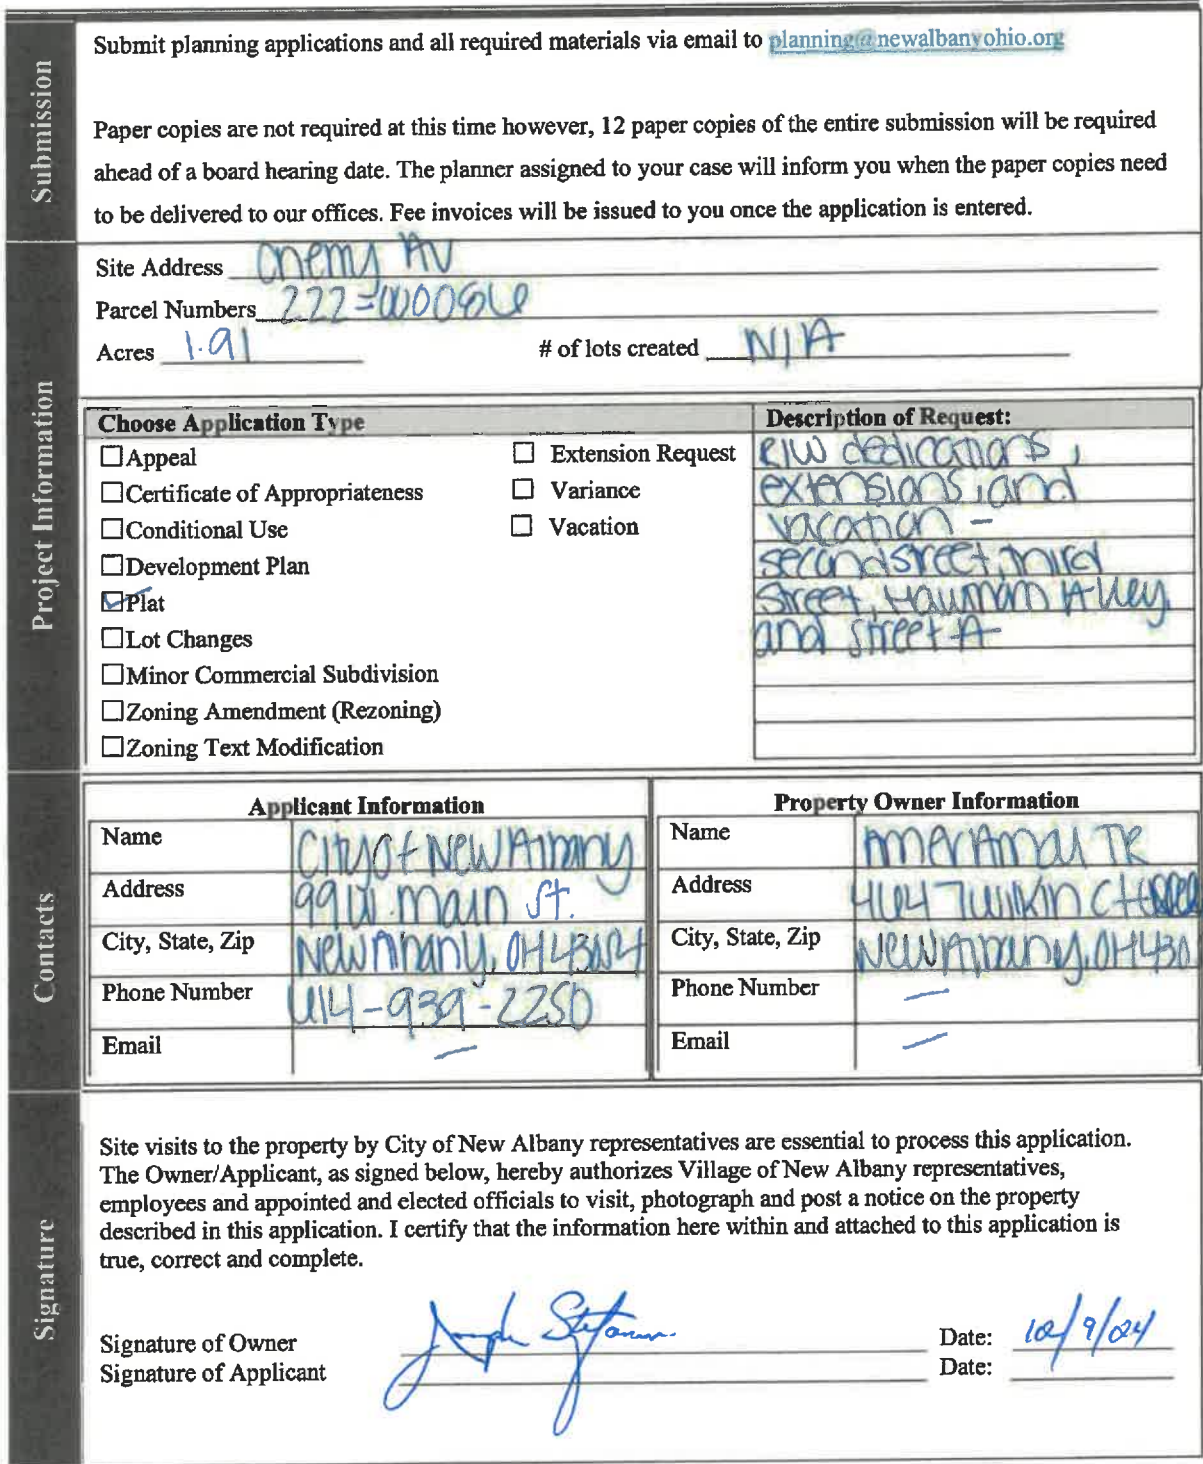 Submission
Submit planning applications and all required materials via email to planning@newalbanyohio.org
Paper copies are not required at this time however, 12 paper copies of the entire submission will be required
ahead of a board hearing date. The planner assigned to your case will inform you when the paper copies need
to be delivered to our offices. Fee invoices will be issued to you once the application is entered.
Project Information
Site Address
Parcel Numbers 222-
Acres 1.91 # of lots created N/A
Choose Application Type
Appeal
Certificate of Appropriateness
Conditional Use
Development Plan
Plat
Lot Changes
Minor Commercial Subdivision
Zoning Amendment (Rezoning)
Zoning Text Modification
Extension Request
Variance
Vacation
Description of Request:
R/W dedications,
extensions, and
vacation -
second street, third
street, Alley,
and street A
Contacts
Applicant Information
Name City of New Albany
Address 99 W. Main St.
City, State, Zip New Albany, OH 43054
Phone Number 614-939-2250
Email —
Property Owner Information
Name TR
Address Ct
City, State, Zip New Albany, OH 430
Phone Number —
Email —
Signature
Site visits to the property by City of New Albany representatives are essential to process this application.
The Owner/Applicant, as signed below, hereby authorizes Village of New Albany representatives,
employees and appointed and elected officials to visit, photograph and post a notice on the property
described in this application. I certify that the information here within and attached to this application is
true, correct and complete.
Signature of Owner Joseph Stefanov Date: 10/9/24
Signature of Applicant Date: